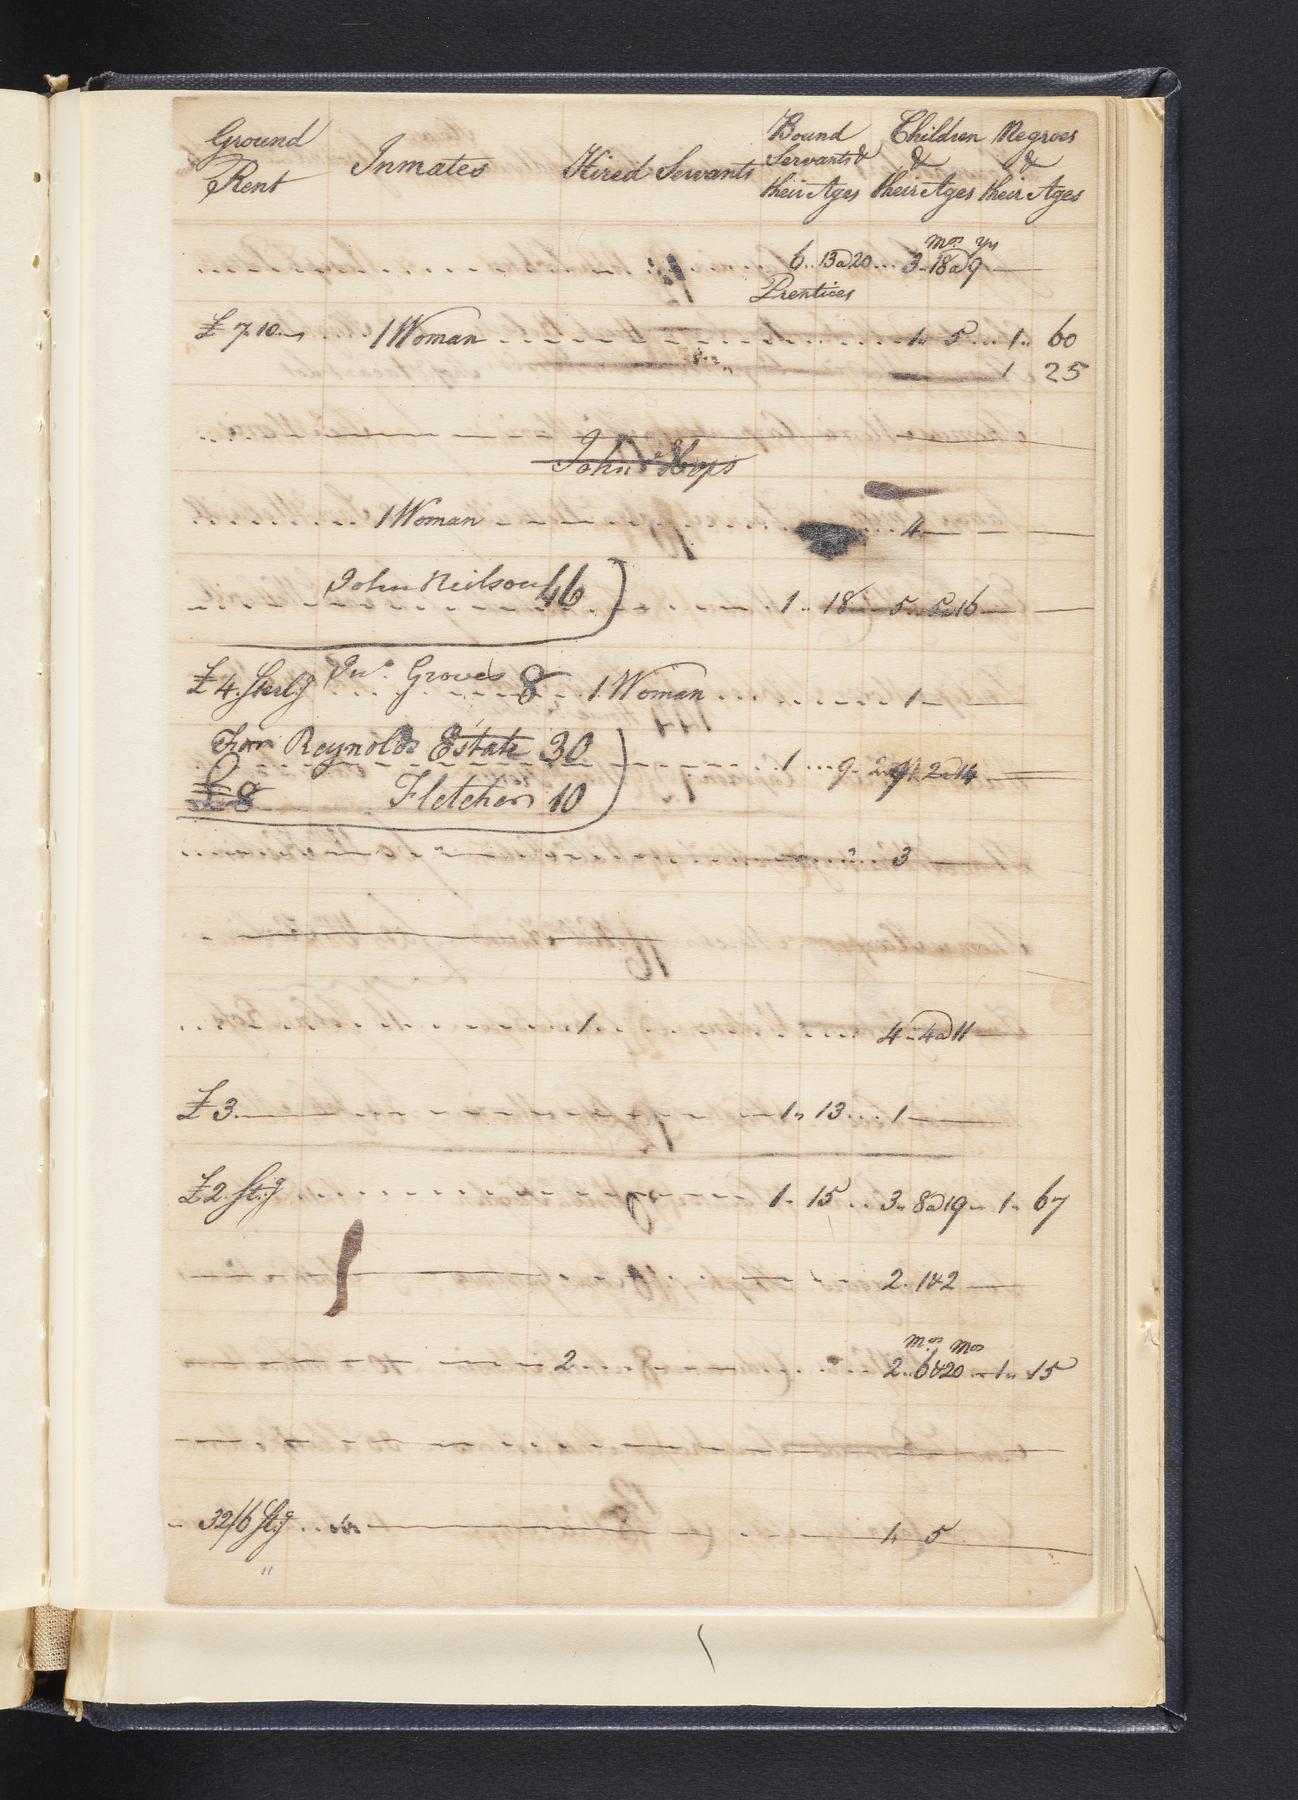 Ground Rent Inmates Hired Servants Bound Servants & their Ages Children & their Ages Negroes & their Ages
mos yrs
6 .. 13 a 20 ... 3 - 18 a 9
Prentices
£ 7.10 .. 1 Woman 1 .. 5 ... 1 .. 60
1 25
John Hops
1 Woman 4
John Neilson 46
1 .. 18 5 .. 5 a 16
£ 4. Sterlg Jno. Groves 8 1 Woman 1
From Reynolds Estate 30
1 ... 9 - 2 2 a 14
£8 Fletchers 10
3
1 4 - 4 a 11
£ 3 1 .. 13 ... 1
£ 2 Stg 1 - 15 .. 3 .. 8 a 19 - 1 - 67
2 . 1 & 2
mos mos
2 2 .. 6 & 20 .. 1 .. 15
32/6 Stg 1 5